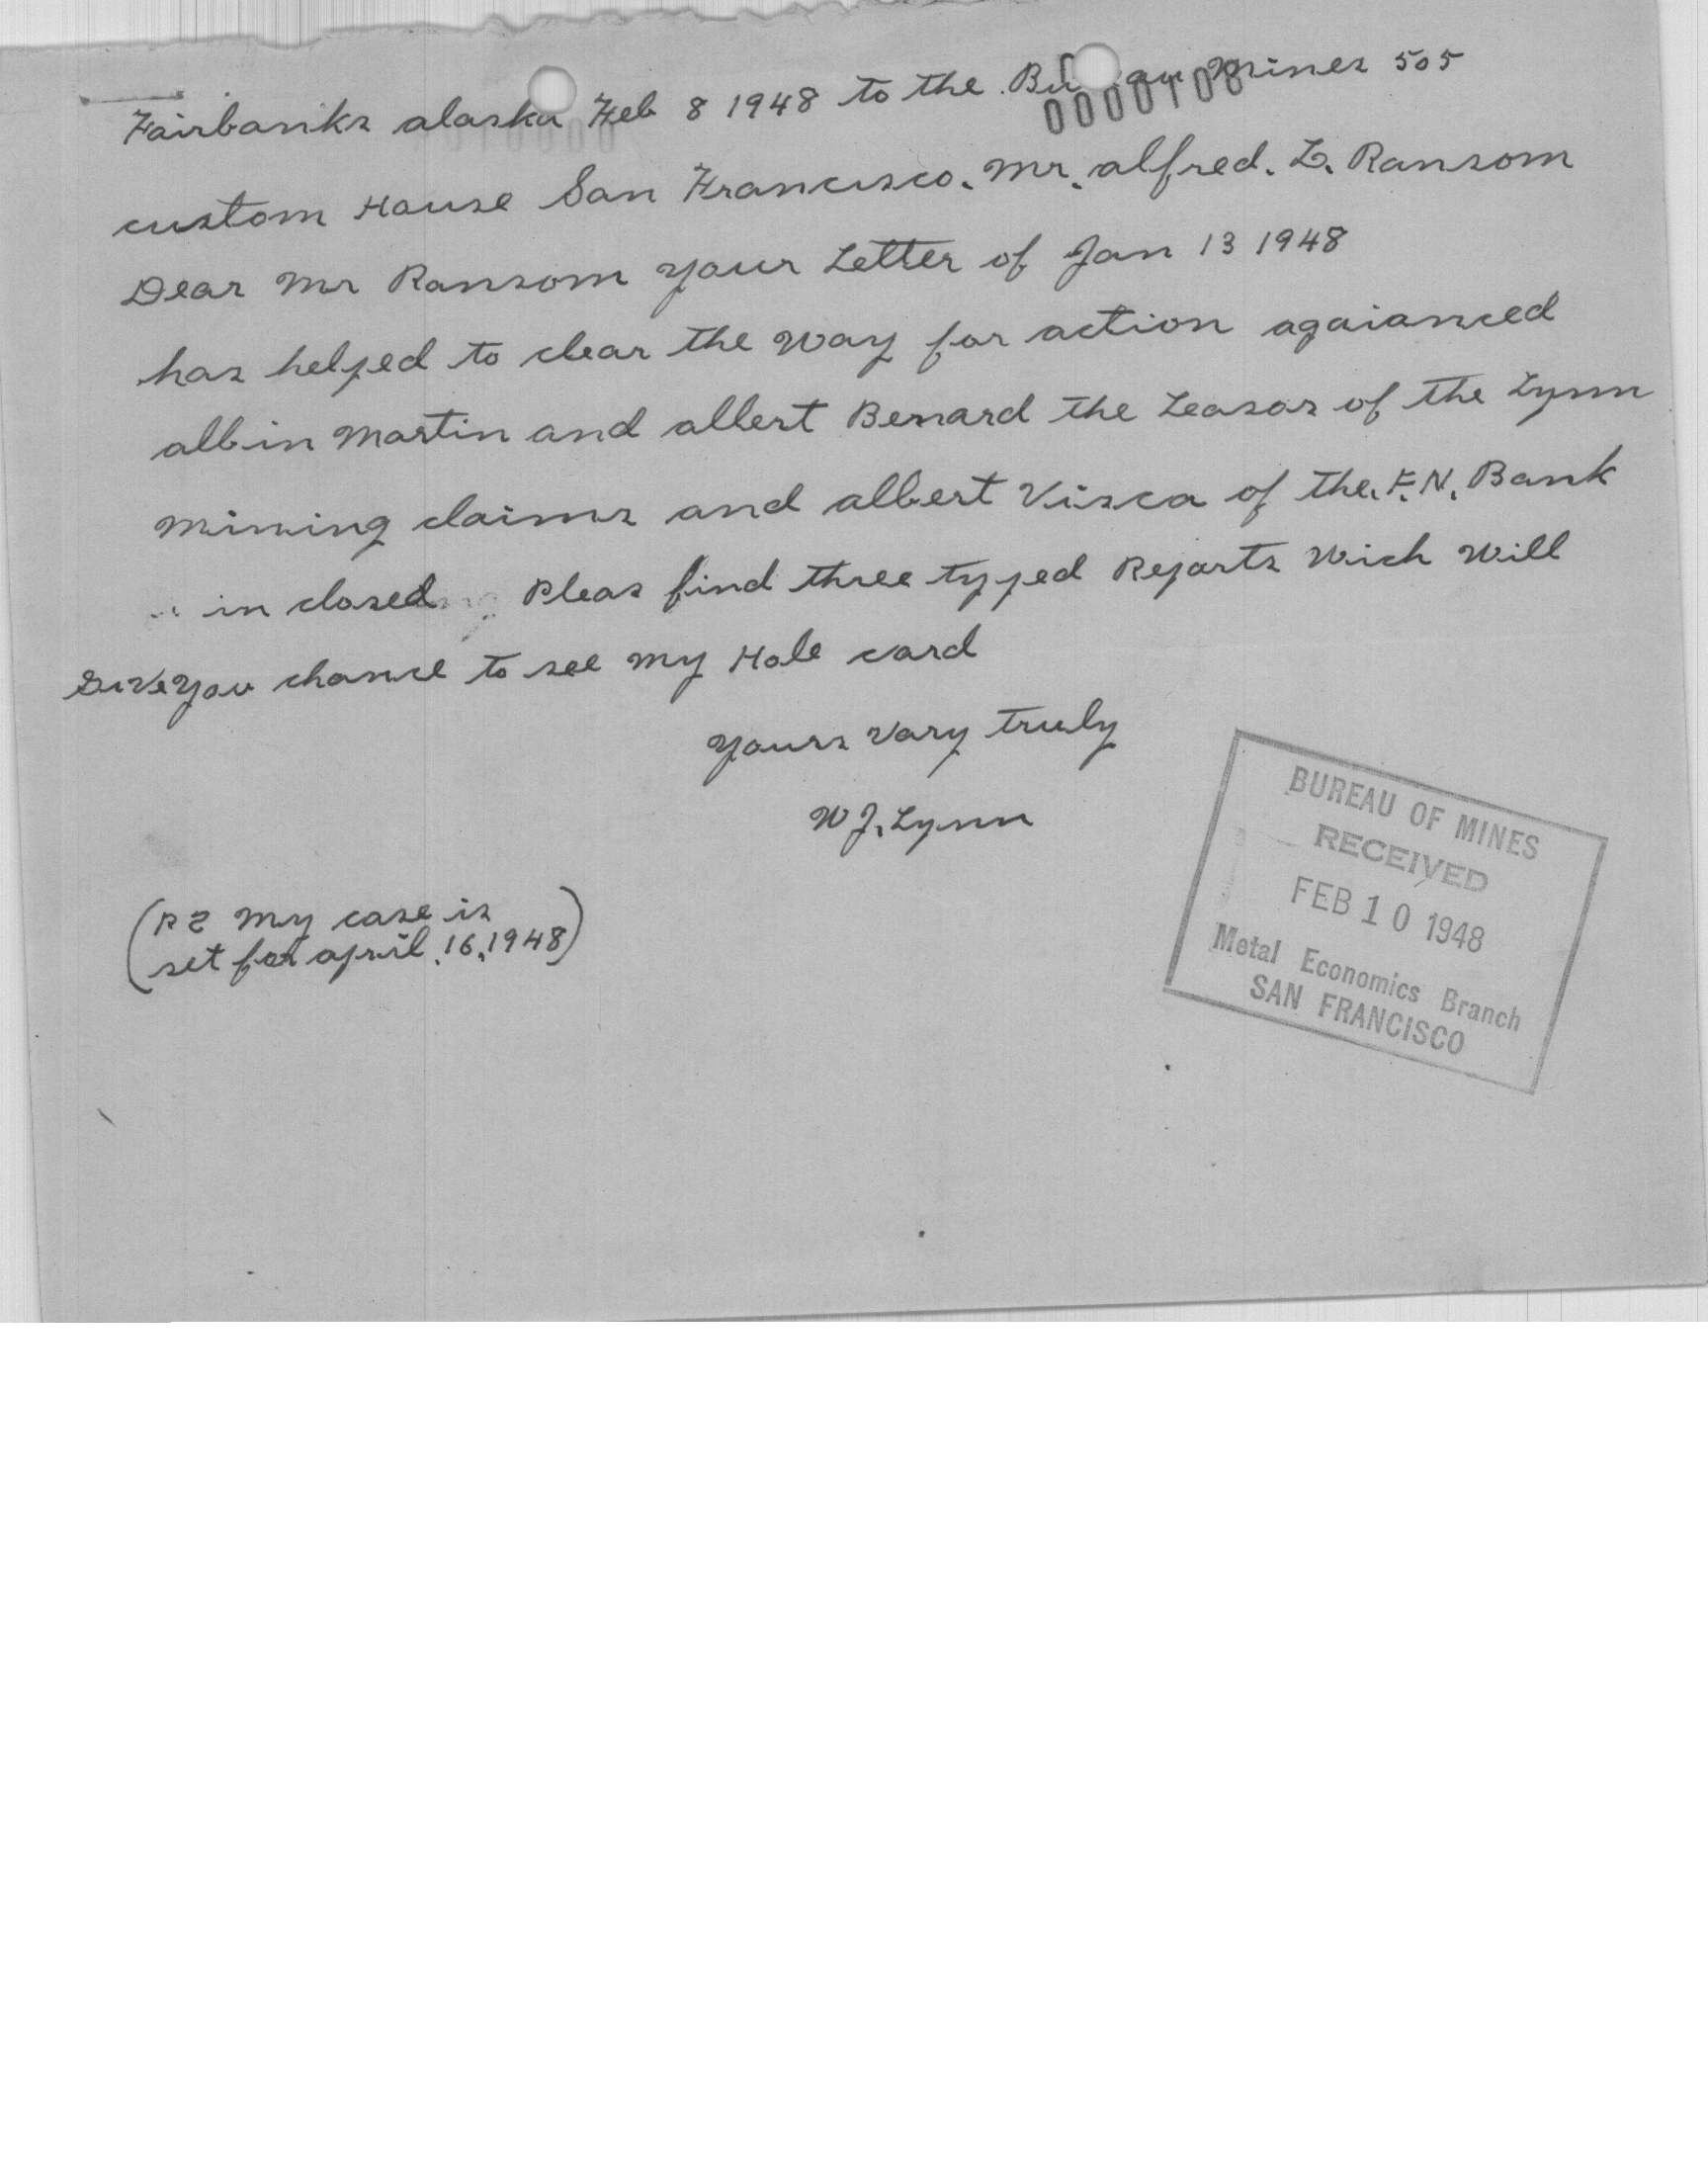 Fairbanks alaska Feb 8 1948 to the Mines 505
0000108
custom House San Francisco. Mr. alfred. L. Ransom
Dear Mr Ransom your Letter of Jan 13 1948
has helped to clear the way for action agaianced
albin Martin and albert Bernard the Leasor of the Lynn
mining claims and albert Visca of the. F.N. Bank
in closed Pleas find three typed Reports Wich Will
Give you chance to see my Hole card
yours Vary Truly
W J. Lynn
(P S my case is
set for april .16.1948)
BUREAU OF MINES
RECEIVED
FEB 10 1948
Metal Economics Branch
SAN FRANCISCO